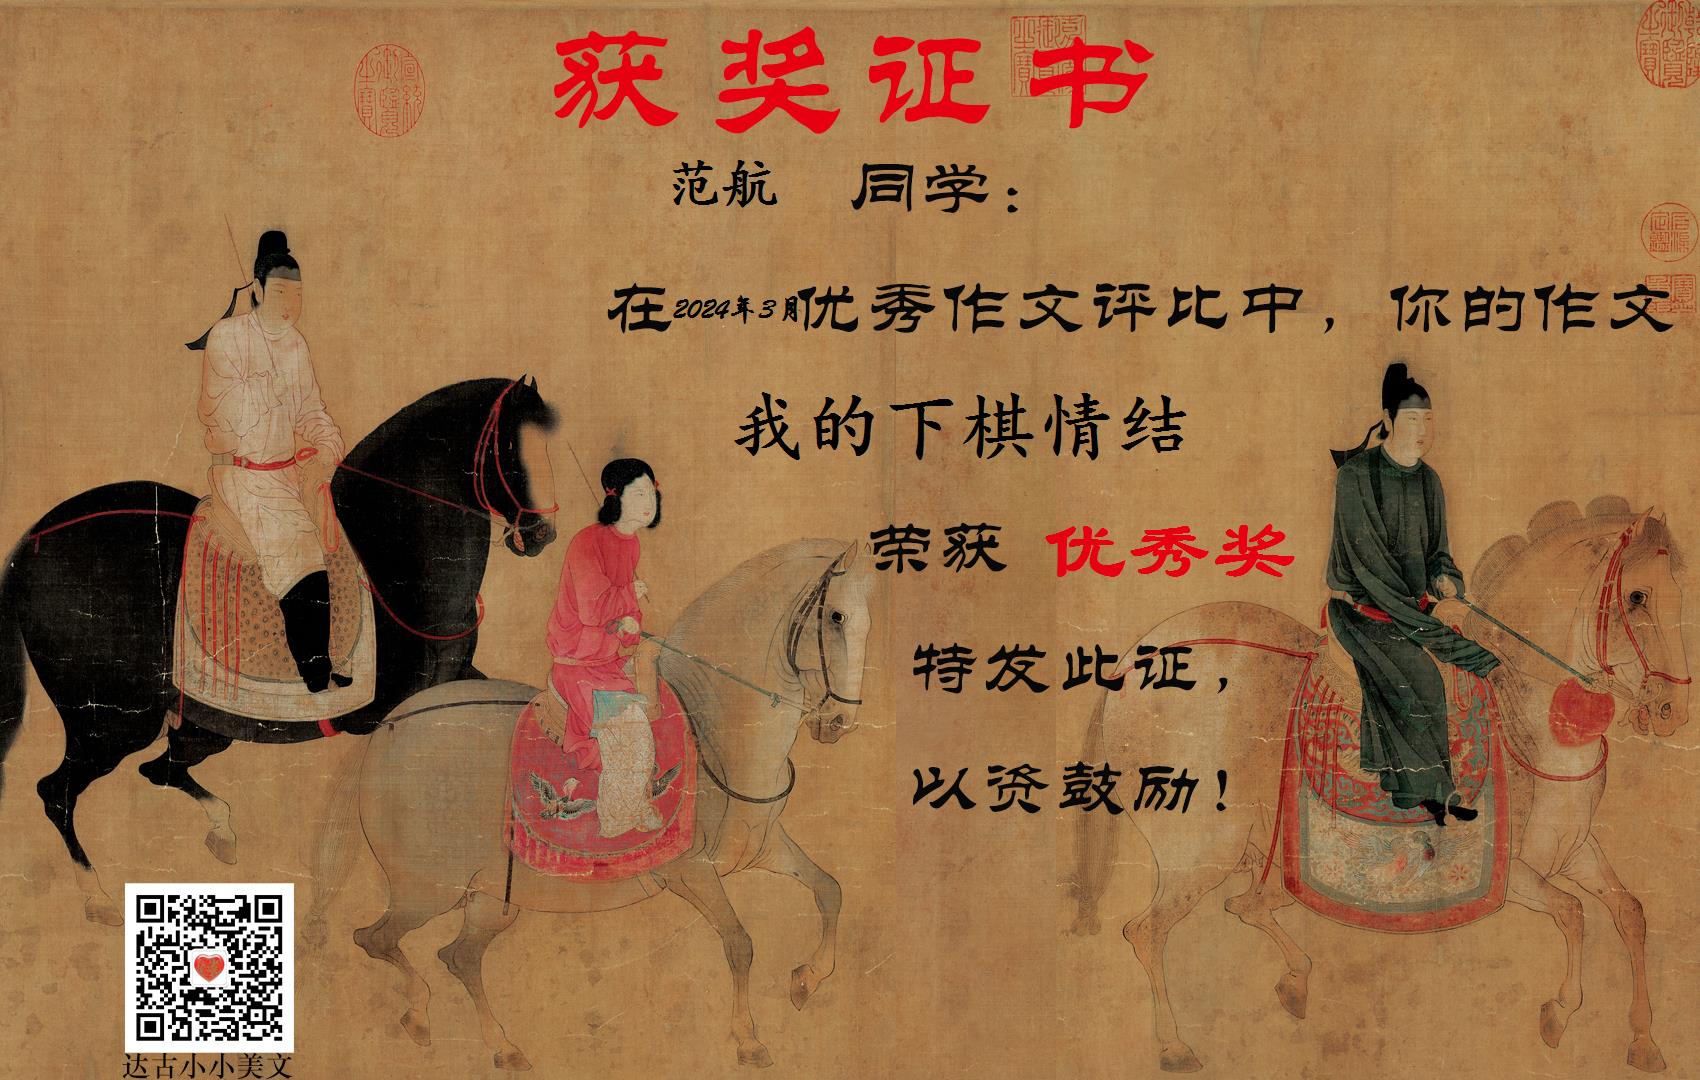 获奖证书
范航 同学：
在2024年3月优秀作文评比中，你的作文
我的下棋情结
荣获 优秀奖
特发此证，
以资鼓励！
达古小小美文